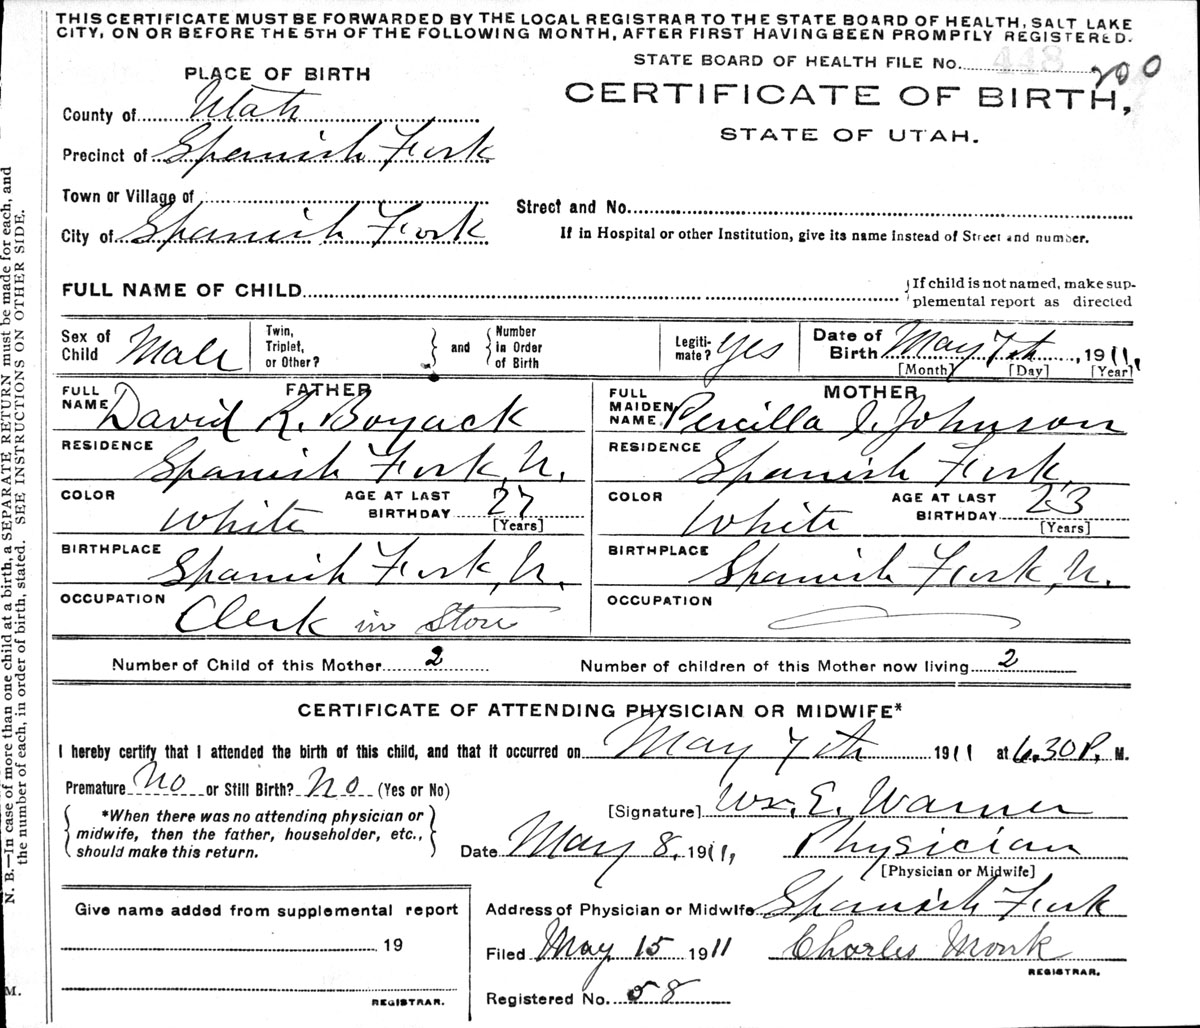 THIS CERTIFICATE MUST BE FORWARDED BY THE LOCAL REGISTRAR TO THE STATE BOARD OF HEALTH, SALT LAKE
CITY, ON OR BEFORE THE 5TH OF THE FOLLOWING MONTH, AFTER FIRST HAVING BEEN PROMPTLY REGISTERED.
STATE BOARD OF HEALTH FILE No. 448 200
PLACE OF BIRTH
CERTIFICATE OF BIRTH,
STATE OF UTAH.
County of Utah
Precinct of Spanish Fork
Town or Village of
Street and No.
City of Spanish Fork
If in Hospital or other Institution, give its name instead of Street and number.
FULL NAME OF CHILD
If child is not named, make sup-
plemental report as directed
Sex of Child Male
Twin, Triplet, or Other?
and
Number in Order of Birth
Legiti-mate? Yes
Date of Birth May 7th, 1911,
[Month] [Day] [Year]
FATHER
FULL NAME David R. Boyack
RESIDENCE Spanish Fork, U.
COLOR White
AGE AT LAST BIRTHDAY 27
[Years]
BIRTHPLACE Spanish Fork, U.
OCCUPATION Clerk in Store
MOTHER
FULL MAIDEN NAME Percilla I. Johnson
RESIDENCE Spanish Fork,
COLOR White
AGE AT LAST BIRTHDAY 23
[Years]
BIRTHPLACE Spanish Fork, U.
OCCUPATION
Number of Child of this Mother 2
Number of children of this Mother now living 2
CERTIFICATE OF ATTENDING PHYSICIAN OR MIDWIFE*
I hereby certify that I attended the birth of this child, and that it occurred on May 7th 1911 at 6.30 P. M.
Premature No or Still Birth? No (Yes or No)
*When there was no attending physician or
midwife, then the father, householder, etc.,
should make this return.
[Signature] Wm. E. Warner
Date May 8, 1911, Physician
[Physician or Midwife]
Address of Physician or Midwife Spanish Fork
Filed May 15 1911 Charles Monk
REGISTRAR.
Registered No. 58
Give name added from supplemental report
19
REGISTRAR.
N. B.—In case of more than one child at a birth, a SEPARATE RETURN must be made for each, and
the number of each, in order of birth, stated. SEE INSTRUCTIONS ON OTHER SIDE.
M.